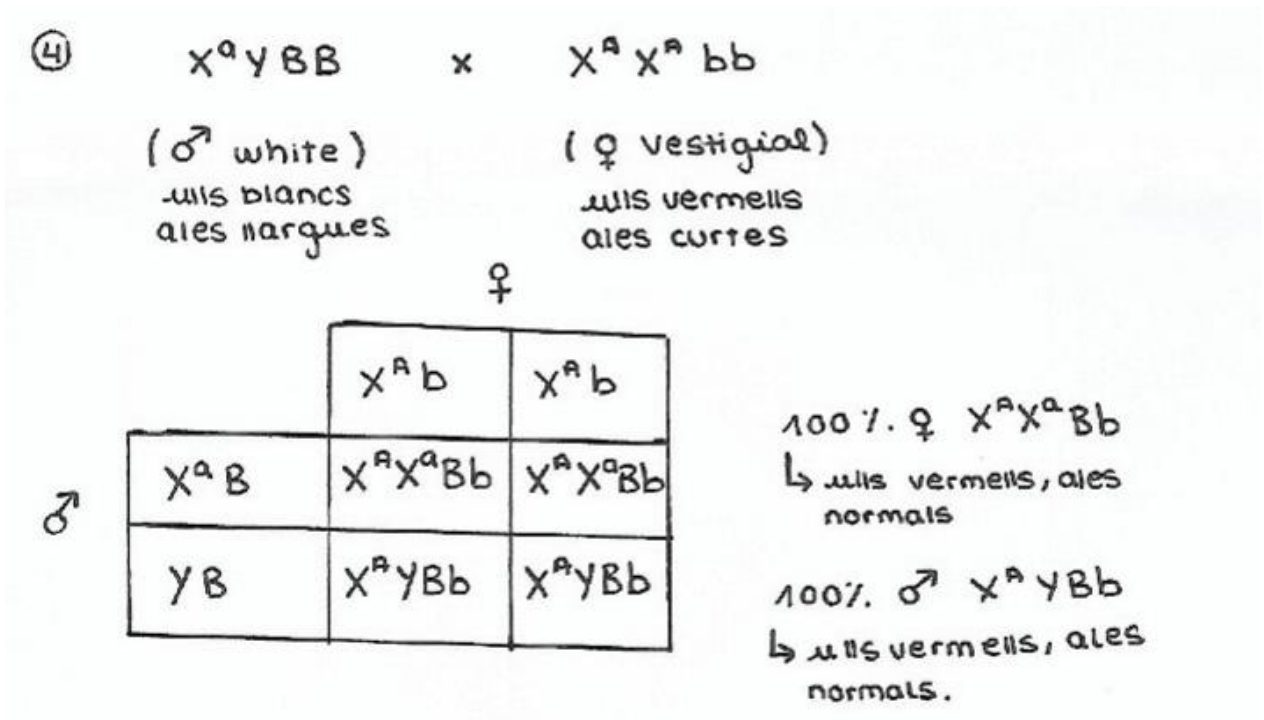 ④ XᵃY BB x Xᴬ Xᴬ bb
(♂ white) (♀ vestigial)
ulls blancs ulls vermells
ales llargues ales curtes
♀
Xᴬ b Xᴬ b
♂ Xᵃ B XᴬXᵃBb XᴬXᵃBb
Y B XᴬYBb XᴬYBb
100%. ♀ XᴬXᵃBb
↳ ulls vermells, ales
normals
100%. ♂ XᴬYBb
↳ ulls vermells, ales
normals.